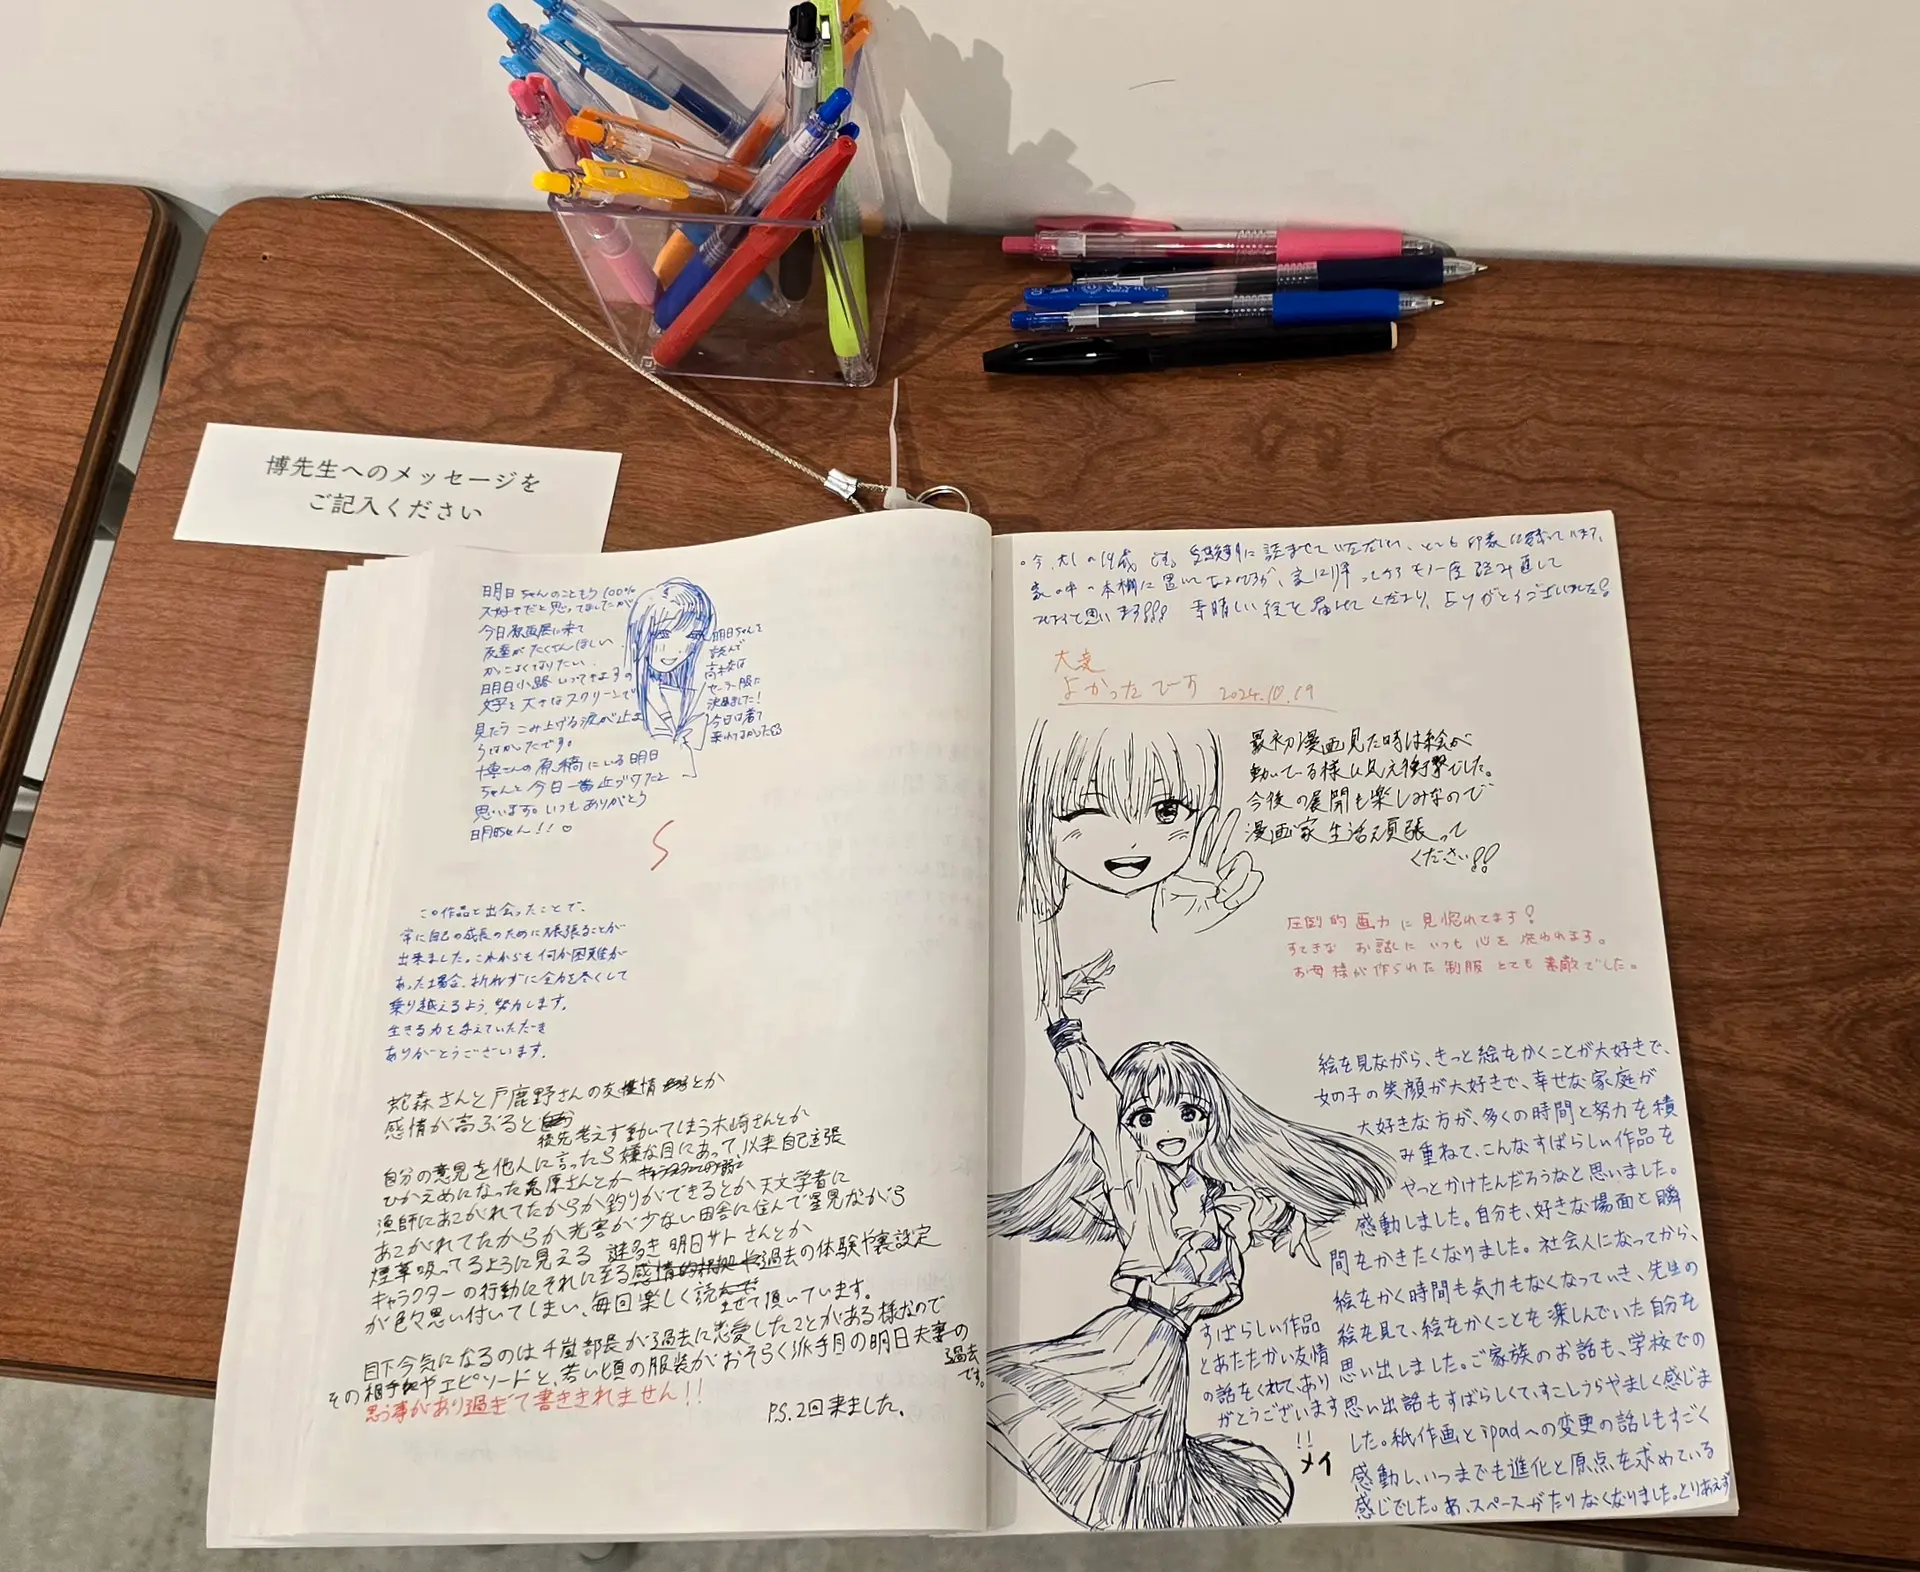 博先生へのメッセージを
ご記入ください
明日ちゃんのこともう100%
大好きだと思ってましたが
今日原画展に来て
友達がたくさんほしい
かっこよくなりたい
明日小路 いってきますの
文字を大きなスクリーンで
見たらこみ上げる涙が止ま
らなかったです。
博さんの原稿にいる明日
ちゃんと今日一番
思います。いつもありがとう
明日ちゃん!!♡
明日ちゃんを
読んで
高校は
セーラー服に
決めました!
今日は着て
この作品と出会ったことで、
常に自己の成長のために頑張ることが
出来ました。これからも何か困難が
あった場合、折れずに全力を尽くして
乗り越えるよう、努力します。
生きる力を与えていただき
ありがとうございます.
蛇森さんと戸鹿野さんの友情とか
感情が高ぶると
後先考えず動いてしまう木崎さんとか
自分の意見を他人に言ったら嫌な目にあって、以来自己主張
ひかえめになった兎原さんとか
漁師にあこがれてたからか釣りができるとか天文学者に
あこがれてたからか光害が少ない田舎に住んで星見ながら
煙草吸ってるように見える 謎多き 明日サトさんとか
キャラクターの行動にそれに至る過去の体験や裏設定
が色々思い付いてしまい、毎回楽しく読ませて頂いています。
目下今気になるのは千嵐部長が過去に恋愛したことがある様なので
その相手やエピソードと、若い頃の服装がおそらく派手目の明日夫妻の
過去
です。
思う事があり過ぎて書ききれません!!
P.S.2回来ました。
家の中の本棚に置いてあるのですが、家に帰ってからもう一度読み直して
みようと思います!!! 素晴しい絵を届けてくださり、ありがとうございました!
大変
よかったでーす 2024.10.19
最初漫画見た時は絵が
動いている様に見え衝撃でした。
今後の展開も楽しみなので
漫画家生活頑張って
ください!!
圧倒的画力に見惚れてます!
すてきな お話に いつも 心を 洗われます。
お母様が作られた制服 とても 素敵でした。
絵を見ながら、きっと絵をかくことが大好きで、
女の子の笑顔が大好きで、幸せな家庭が
大好きな方が、多くの時間と努力を積
み重ねて、こんなすばらしい作品を
やっとかけたんだろうなと思いました。
感動しました。自分も、好きな場面と瞬
間をかきたくなりました。社会人になってから、
絵をかく時間も気力もなくなっていき、先生の
絵を見て、絵をかくことを楽しんでいた自分を
思い出しました。ご家族のお話も、学校での
思い出話もすばらしくて、すこしうらやましく感じま
した。紙作画とipadへの変更の話しもすごく
感動し、いつまでも進化と原点を求めている
感じでした。あ、スペースがたりなくなりました。とりあえず
すばらしい作品
とあたたかい友情
の話をくれて、あり
がとうございます
!!
メイ